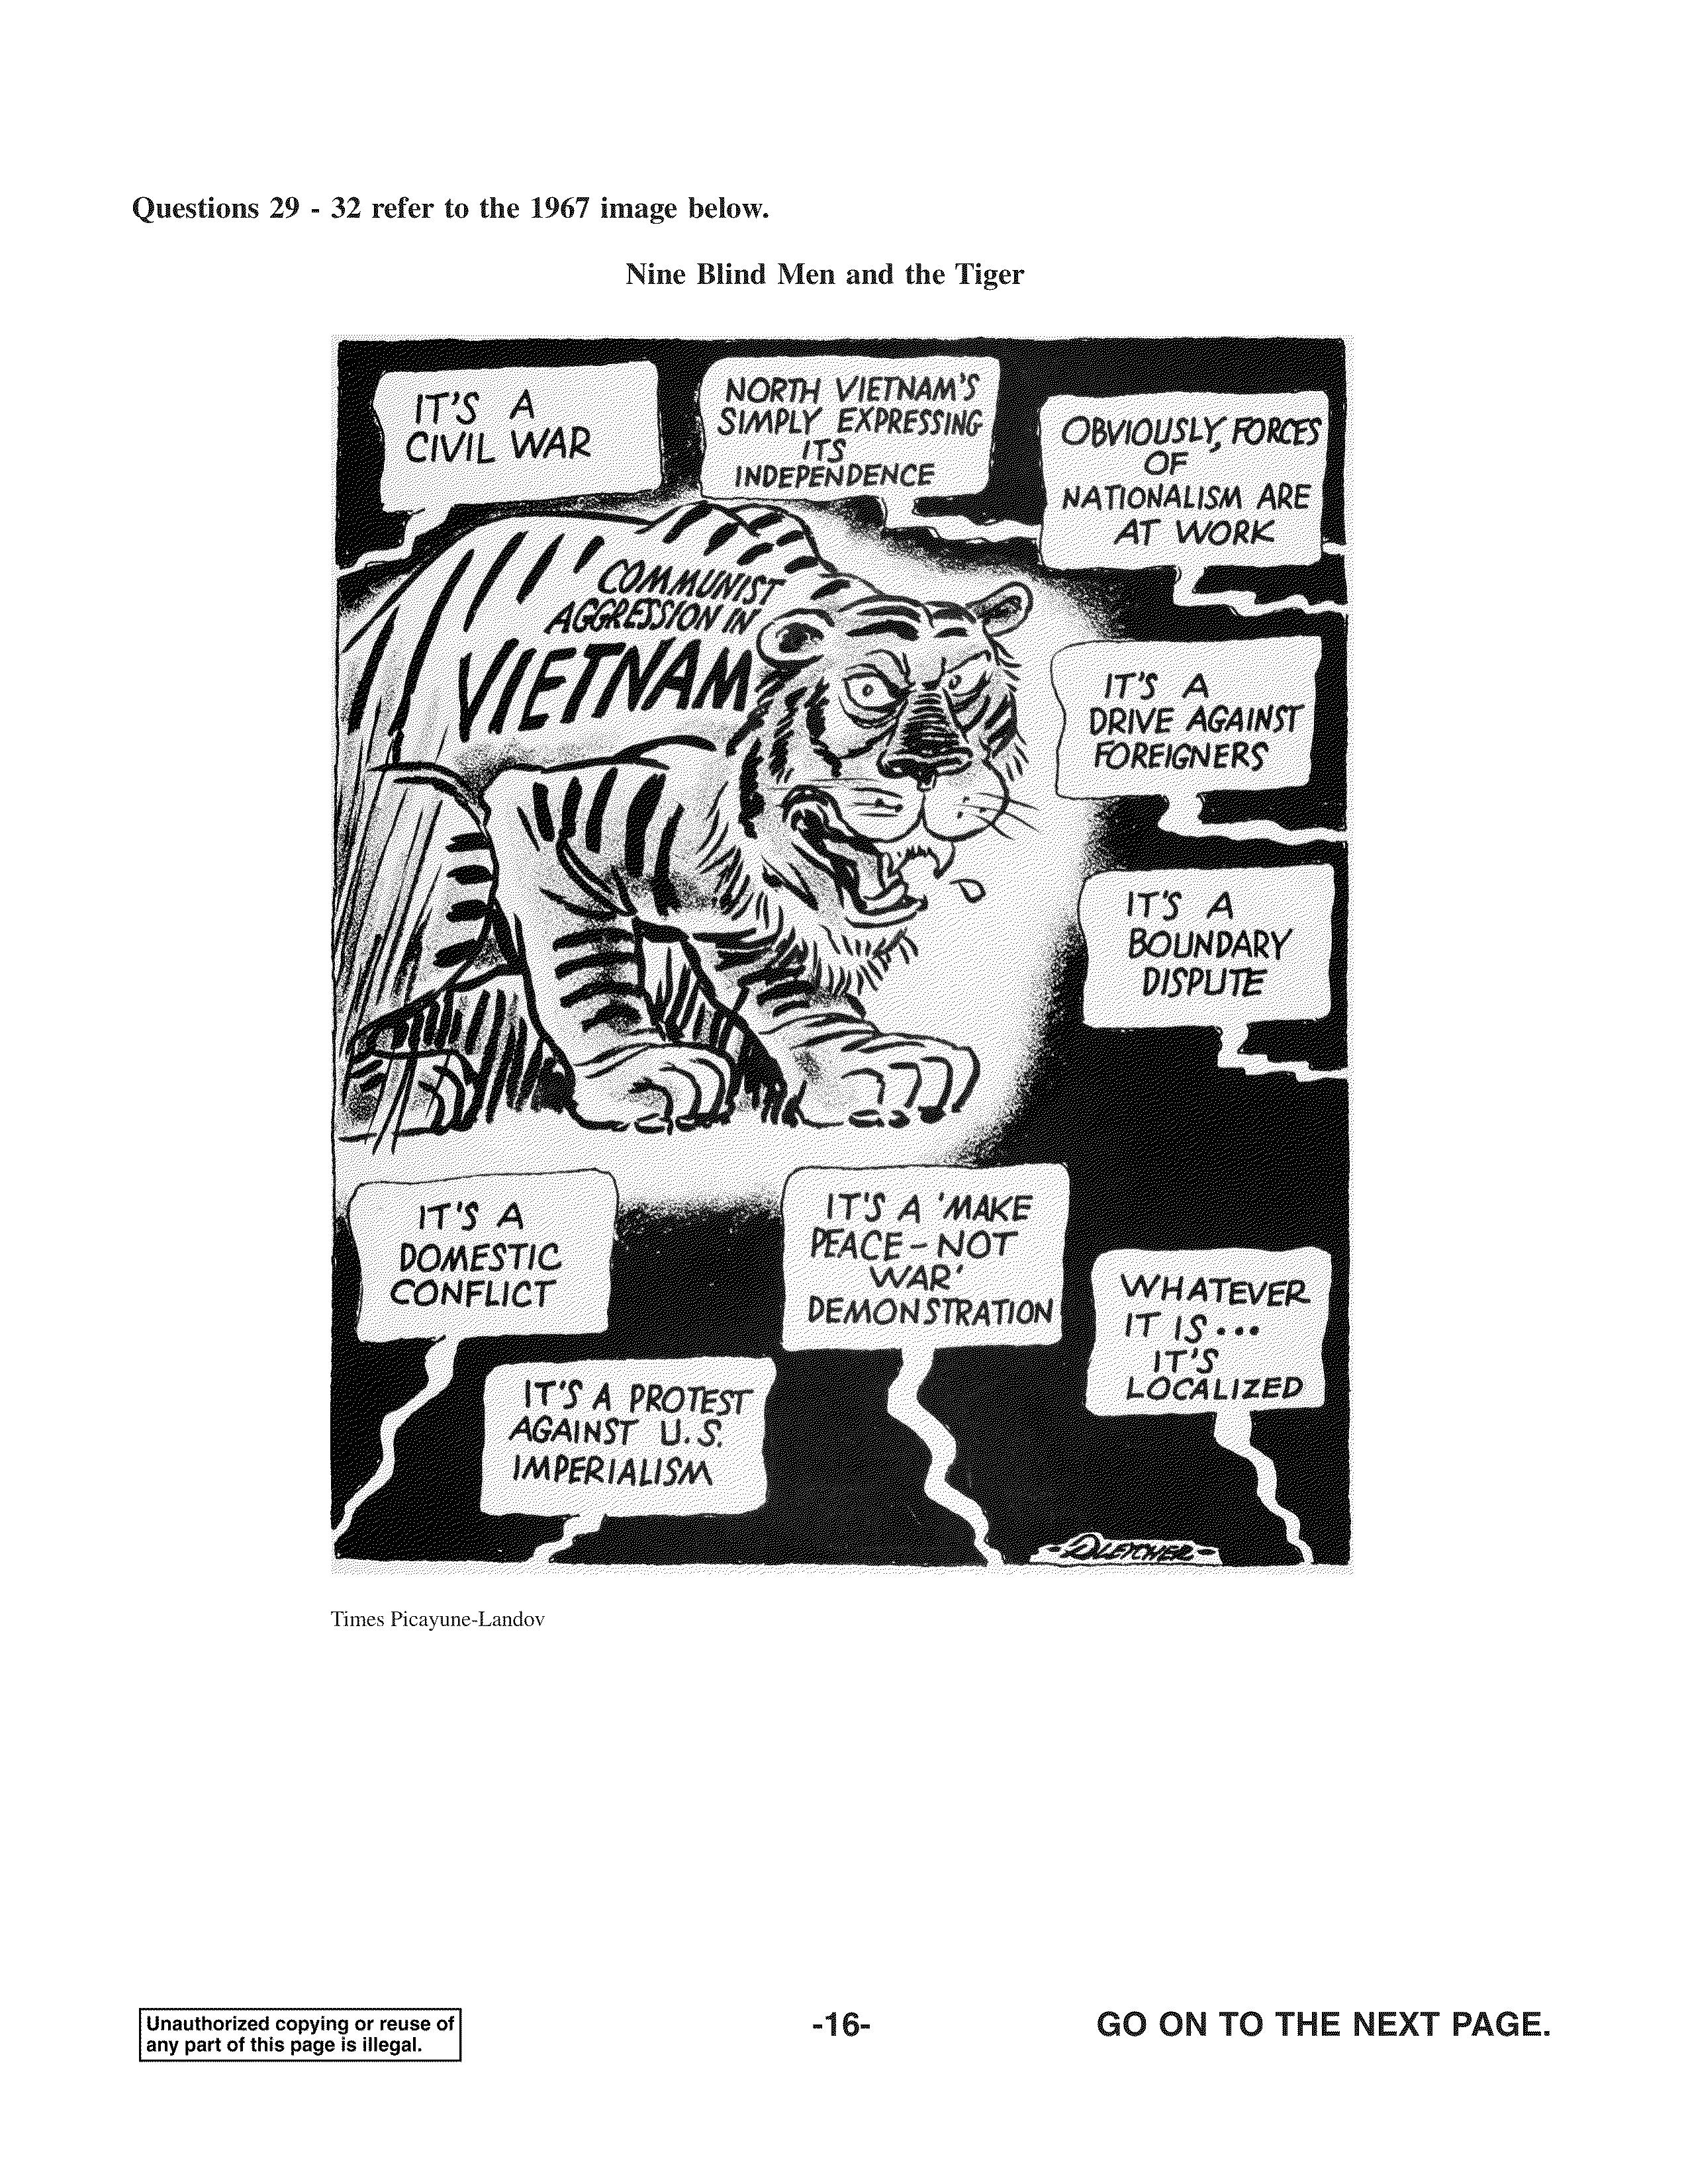 Questions 29 - 32 refer to the 1967 image below.
Nine Blind Men and the Tiger
IT'S A
CIVIL WAR
NORTH VIETNAM'S
SIMPLY EXPRESSING
ITS
INDEPENDENCE
OBVIOUSLY, FORCES
OF
NATIONALISM ARE
AT WORK
COMMUNIST
AGGRESSION IN
VIETNAM
IT'S A
DRIVE AGAINST
FOREIGNERS
IT'S A
BOUNDARY
DISPUTE
IT'S A
DOMESTIC
CONFLICT
IT'S A 'MAKE
PEACE-NOT
WAR'
DEMONSTRATION
WHATEVER
IT IS...
IT'S
LOCALIZED
IT'S A PROTEST
AGAINST U.S.
IMPERIALISM
Times Picayune-Landov
Unauthorized copying or reuse of
any part of this page is illegal.
-16-
GO ON TO THE NEXT PAGE.